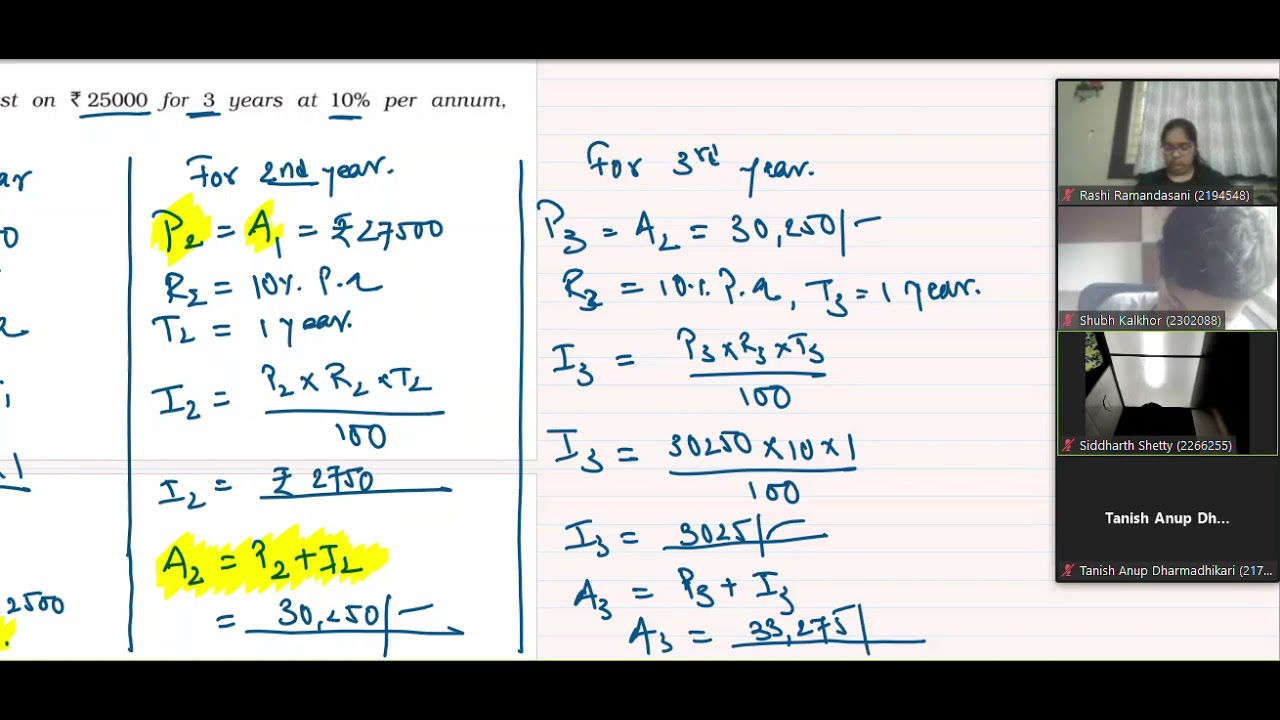 st on ₹ 25000 for 3 years at 10% per annum,
ar
0
1
2500
For 2nd year.
P2 = A1 = ₹27500
R2 = 10%. P.a
T2 = 1 year.
I2 = P2 × R2 × T2
100
I2 = ₹ 2750
A2 = P2 + I2
= 30,250/-
For 3rd year.
P3 = A2 = 30,250/-
R3 = 10%. P.a, T3 = 1 year.
I3 = P3 × R3 × T3
100
I3 = 30250 × 10 × 1
100
I3 = 3025/-
A3 = P3 + I3
A3 = 33,275/
Rashi Ramandasani (2194548)
Shubh Kalkhor (2302088)
Siddharth Shetty (2266255)
Tanish Anup Dh...
Tanish Anup Dharmadhikari (217...